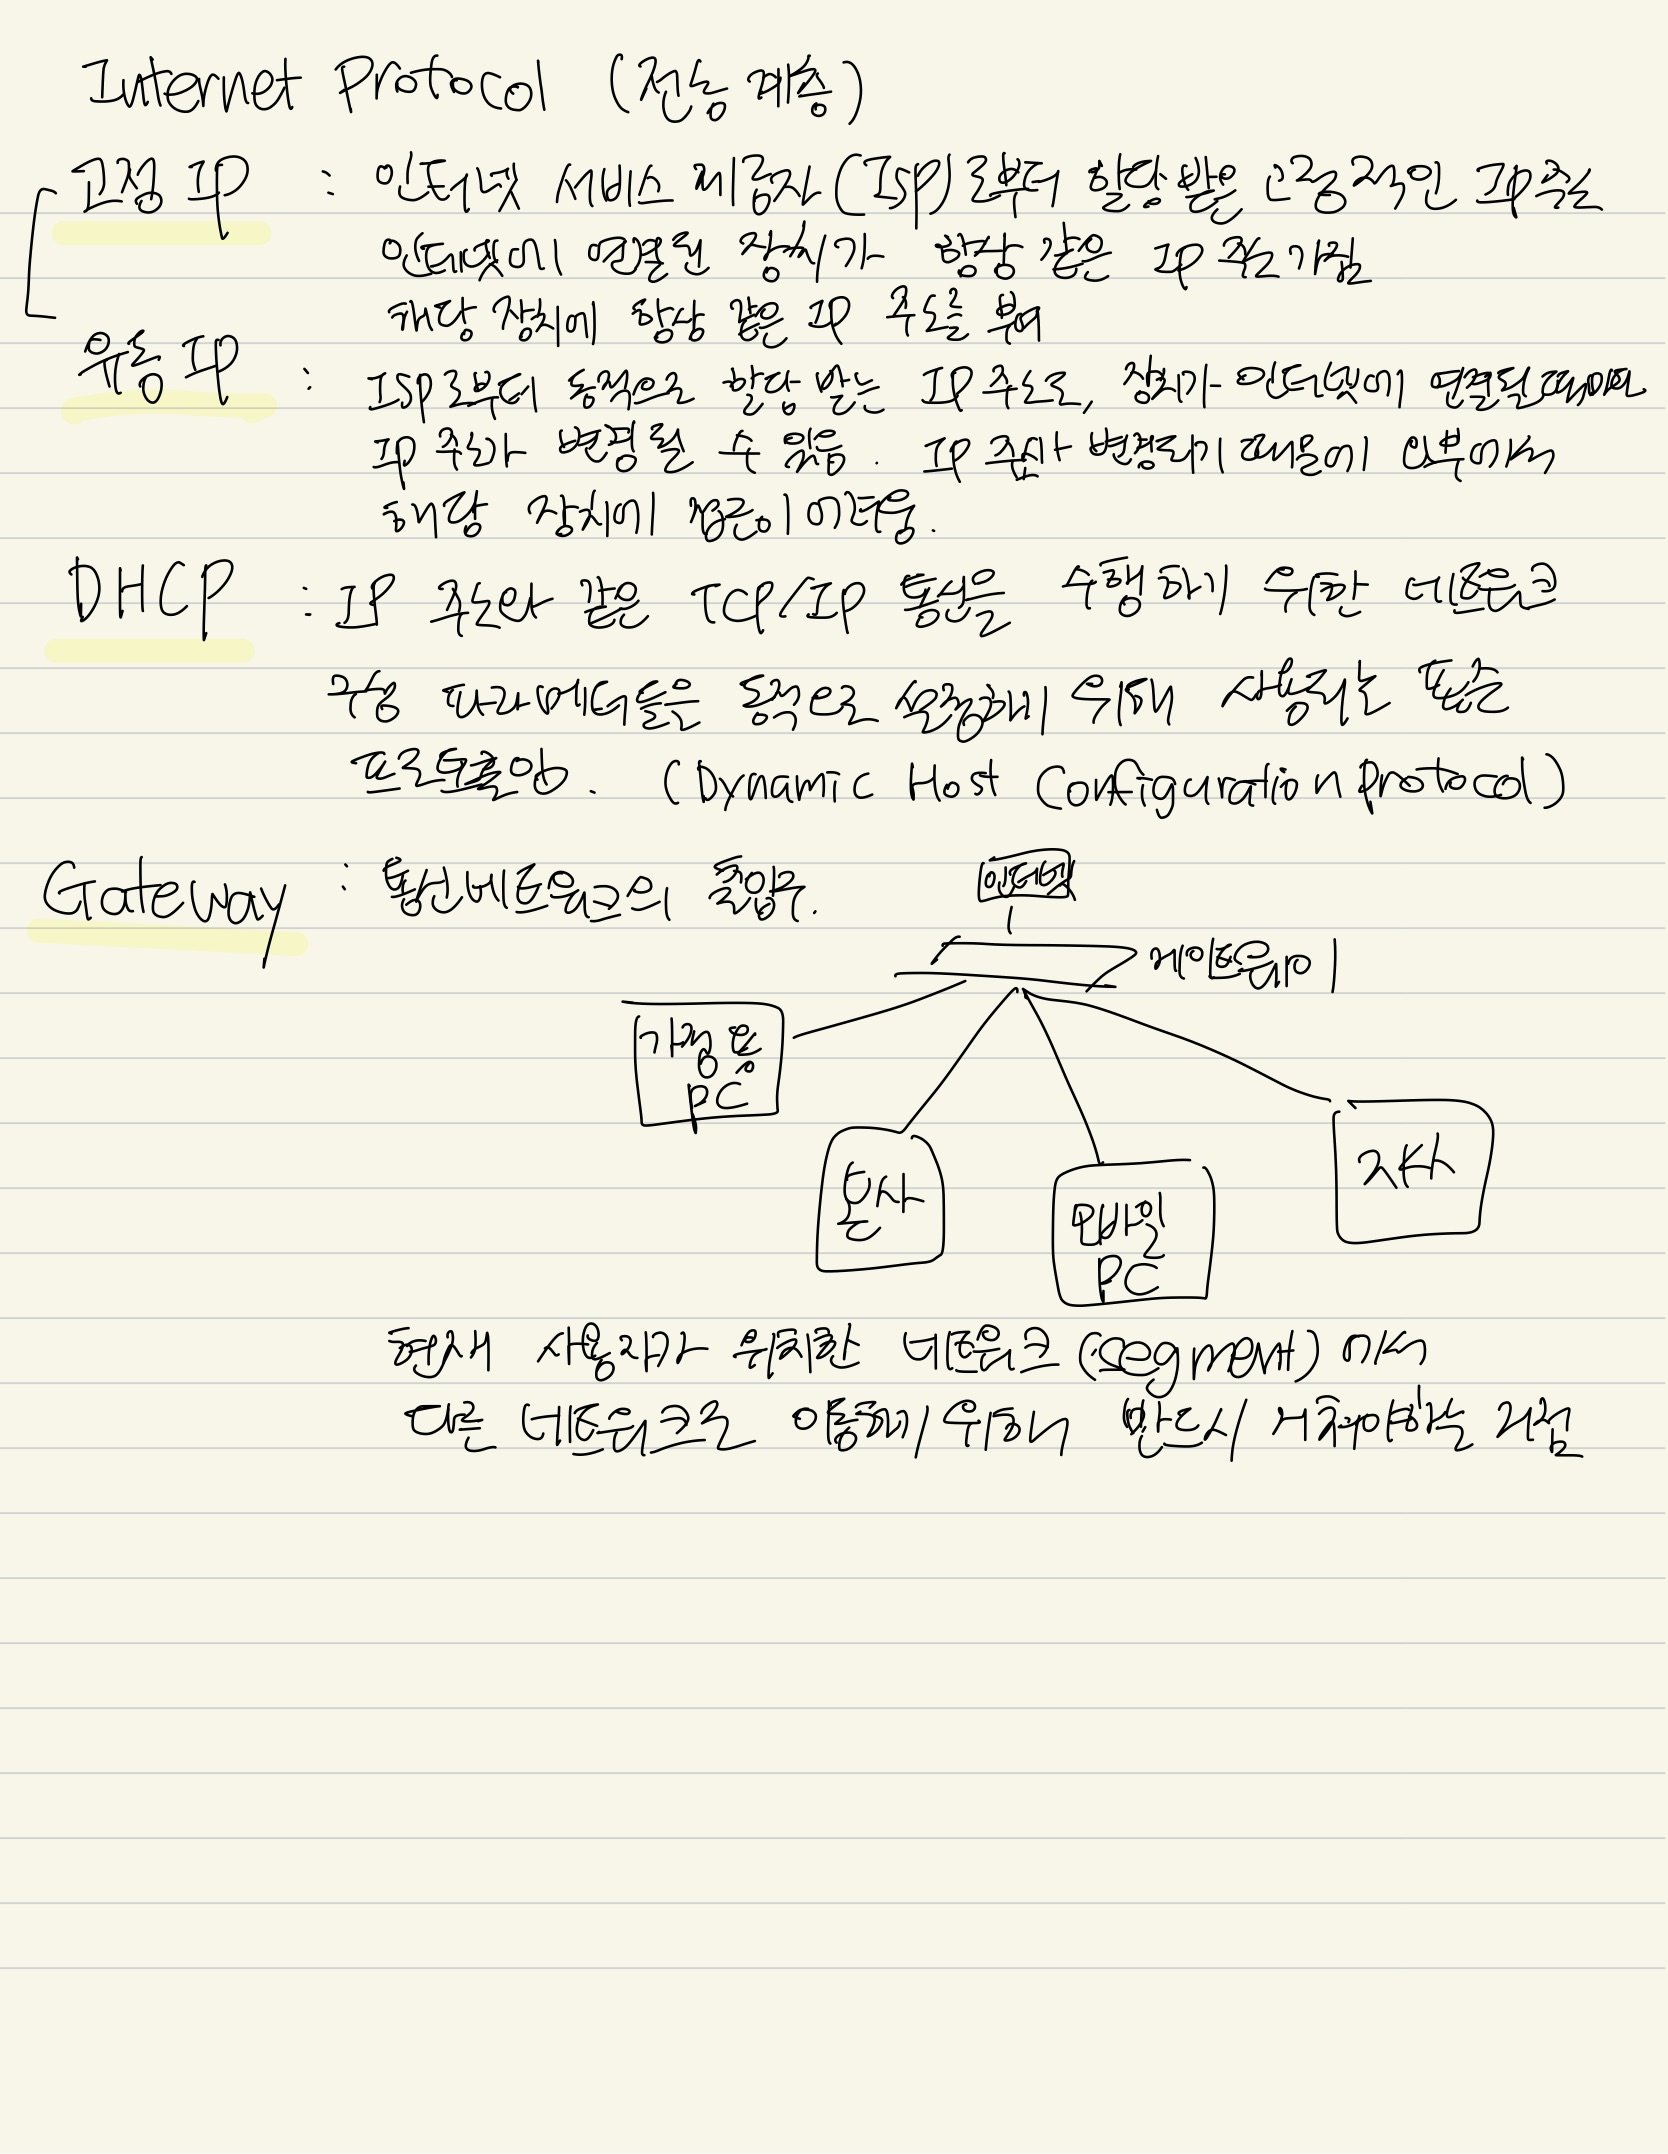 Internet Protocol (전송 계층)
고정 IP : 인터넷 서비스 제공자(ISP)로부터 할당 받은 고정적인 IP 주소
인터넷에 연결된 장치가 항상 같은 IP 주소 가짐
해당 장치에 항상 같은 IP 주소를 부여
유동 IP : ISP로부터 동적으로 할당 받는 IP 주소로, 장치가 인터넷에 연결될 때마다
IP 주소가 변경될 수 있음. IP 주소가 변경되기 때문에 외부에서
해당 장치에 접근이 어려움.
DHCP : IP 주소와 같은 TCP/IP 통신을 수행하기 위한 네트워크
구성 파라메터들을 동적으로 설정하기 위해 사용되는 표준
프로토콜임. (Dynamic Host Configuration Protocol)
Gateway : 통신네트워크의 출입구.
인터넷
게이트웨이
가정용
PC
본사
모바일
PC
지사
현재 사용자가 위치한 네트워크(segment)에서
다른 네트워크로 이동하기 위해 반드시 거쳐야하는 거점